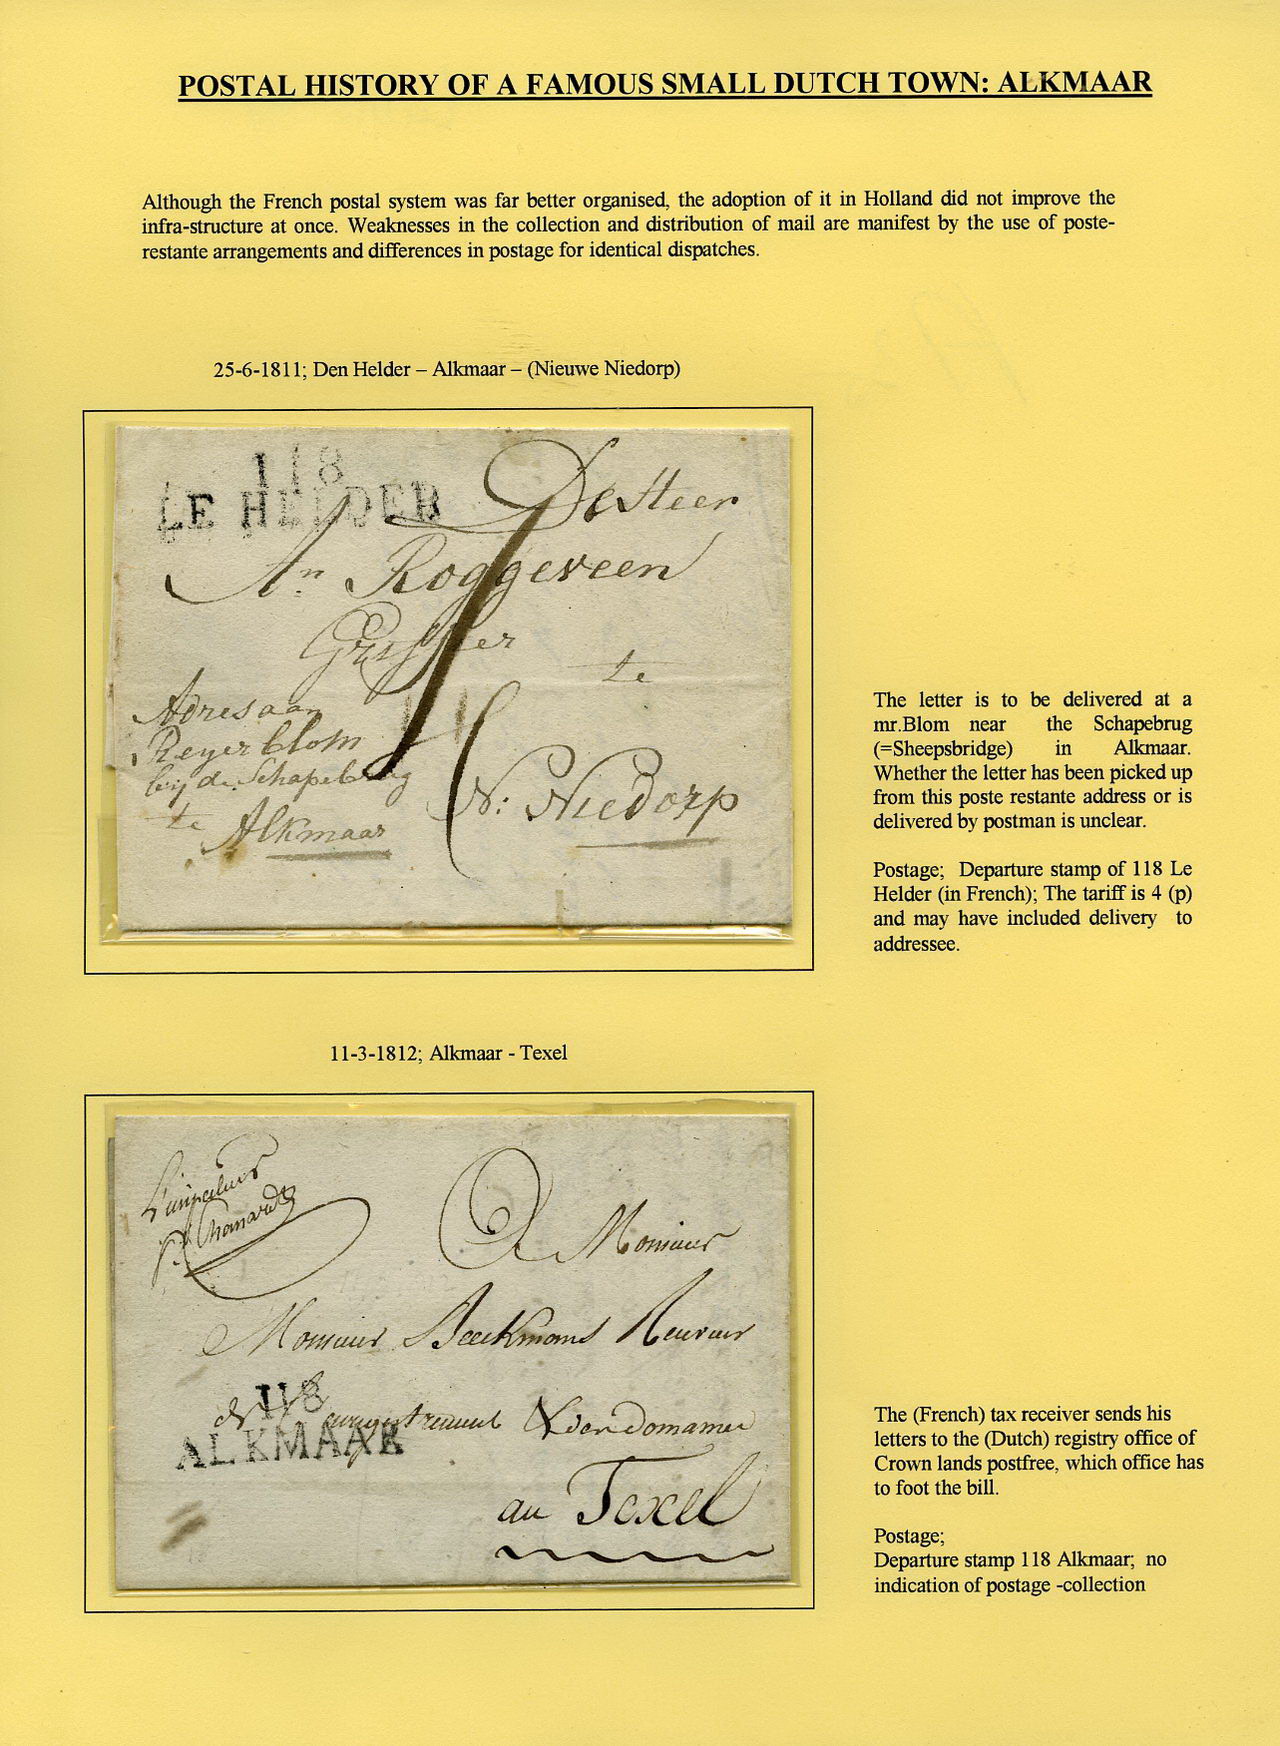 POSTAL HISTORY OF A FAMOUS SMALL DUTCH TOWN: ALKMAAR
Although the French postal system was far better organised, the adoption of it in Holland did not improve the
infra-structure at once. Weaknesses in the collection and distribution of mail are manifest by the use of poste-
restante arrangements and differences in postage for identical dispatches.
25-6-1811; Den Helder – Alkmaar – (Nieuwe Niedorp)
118
LE HELDER
De Heer
An Roggeveen
Griffier
te
Adres aan
Reyer Blom
bij de Schapebrug
te Alkmaar
N: Niedorp
The letter is to be delivered at a
mr.Blom near the Schapebrug
(=Sheepsbridge) in Alkmaar.
Whether the letter has been picked up
from this poste restante address or is
delivered by postman is unclear.
Postage; Departure stamp of 118 Le
Helder (in French); The tariff is 4 (p)
and may have included delivery to
addressee.
11-3-1812; Alkmaar - Texel
A Monsieur
Monsieur Beekmans Receveur
118
de l'enregistrement & des domaines
ALKMAAR
au Texel
The (French) tax receiver sends his
letters to the (Dutch) registry office of
Crown lands postfree, which office has
to foot the bill.
Postage;
Departure stamp 118 Alkmaar; no
indication of postage -collection